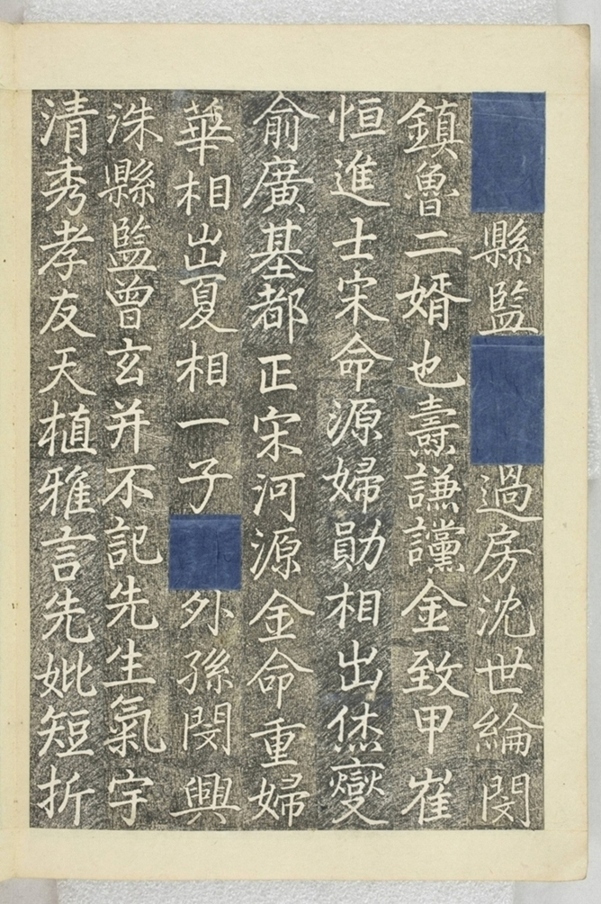 縣監過房沈世綸閔
鎮魯二婿也壽謙讜金致甲崔
恒進士宋命源婦勛相出烋燮
俞廣基都正宋河源金命重婦
華相出夏相一子外孫閔興
洙縣監曾玄并不記先生氣宇
清秀孝友天植雅言先妣短折